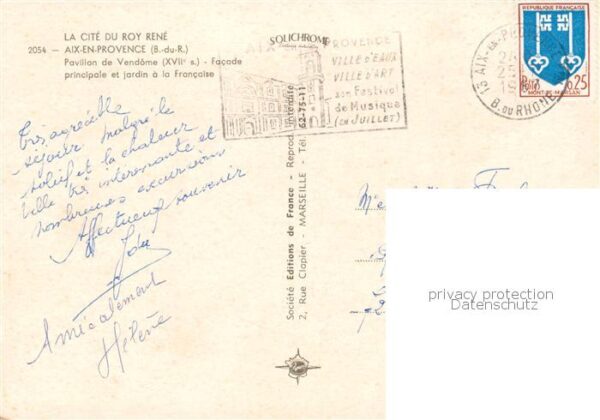 LA CITÉ DU ROY RENÉ
2054 - AIX-EN-PROVENCE (B.-du-R.)
Pavillon de Vendôme (XVIIe s.) - Façade
principale et jardin à la Française
Très agréable
séjour malgré le
soleil et la chaleur
ville très intéressante et
nombreuses excursions
Affectueux souvenir
Amicalement
Hélène
SOLICHROME
Société Editions de France - Reprod. interdite
2, Rue Clapier - MARSEILLE - Tél. 62-75-11
AIX EN PROVENCE
VILLE d'EAUX
VILLE d'ART
son Festival
de Musique
(en JUILLET)
13 AIX-EN-PROVENCE
B. DU RHONE
REPUBLIQUE FRANÇAISE
0,25
MONT-DE-MARSAN
privacy protection
Datenschutz